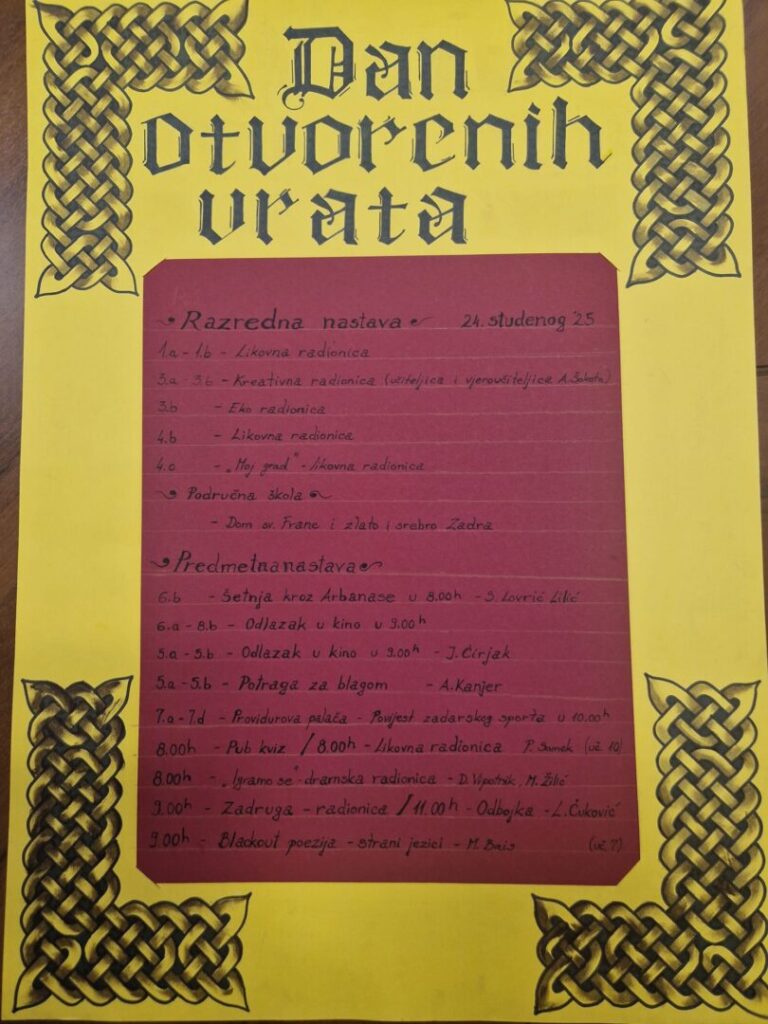 Dan
otvorenih
vrata
Razredna nastava 24. studenog '25
1.a - 1.b - Likovna radionica
3.a - 3.b - Kreativna radionica (učiteljica i vjeroučiteljica A.
3.b - Eko radionica
4.b - Likovna radionica
4.c - „Moj grad" - likovna radionica
Područna škola
- Dom sv. Frane i zlato i srebro Zadra
Predmetna nastava
6.b - Šetnja kroz Arbanase u 8.00h - S. Lovrić Lilić
6.a - 8.b - Odlazak u kino u 9.00h
5.a - 5.b - Odlazak u kino u 9.00h - J. Ćirjak
5.a - 5.b - Potraga za blagom - A. Kanjer
7.a - 7.d - Providurova palača - Povijest zadarskog sporta u 10.00h
8.00h - Pub kviz / 8.00h - Likovna radionica (uč. 10)
8.00h - „Igramo se" - dramska radionica - D. Vrpotnik, M. Žilić
9.00h - Zadruga - radionica / 11.00h - Odbojka - L. Ćuković
9.00h - Blackout poezija - strani jezici - M. (uč. 7)